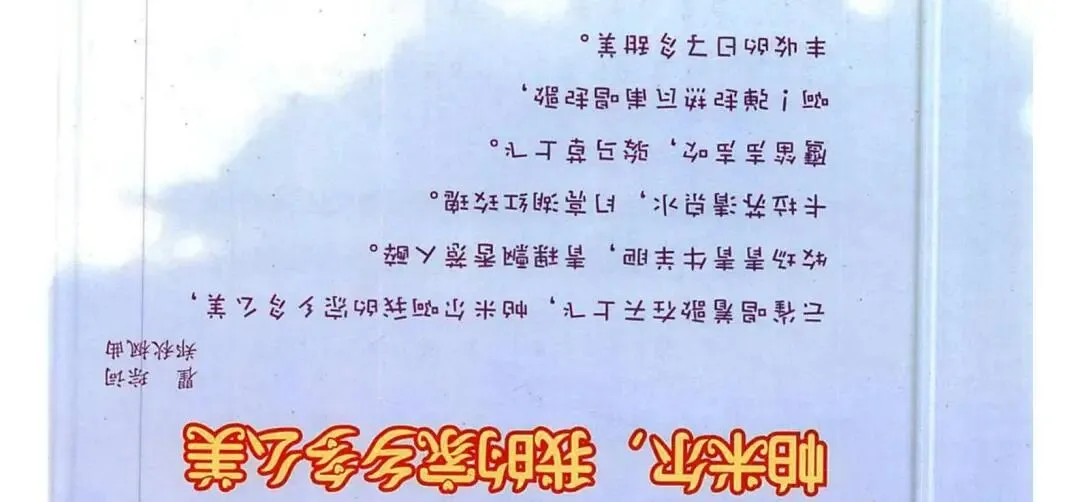 帕米尔，我的家乡多么美
瞿 琮词
郑秋枫曲
云雀唱着歌在天上飞，帕米尔啊我的家乡多么美，
牧场青青牛羊肥，青稞飘香惹人醉。
卡拉苏清泉水，月亮湖红玫瑰。
鹰笛声声吹，骏马草上飞。
啊！弹起热瓦甫唱起歌，
丰收的日子多甜美。